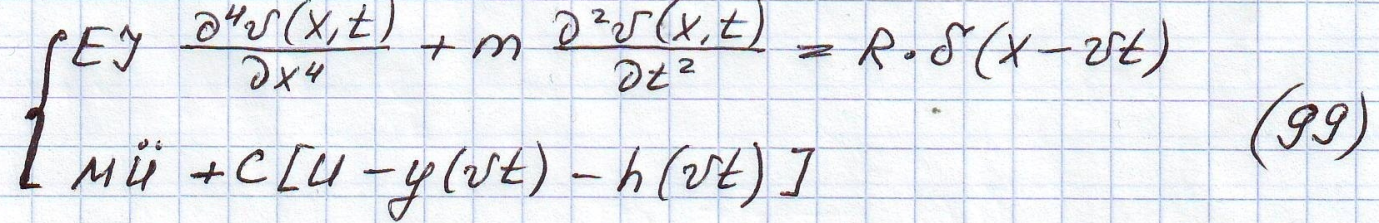 EJ ∂⁴v(x,t)/∂x⁴ + m ∂²v(x,t)/∂t² = R·δ(x-vt)
Mü + C[U - y(vt) - h(vt)] (99)